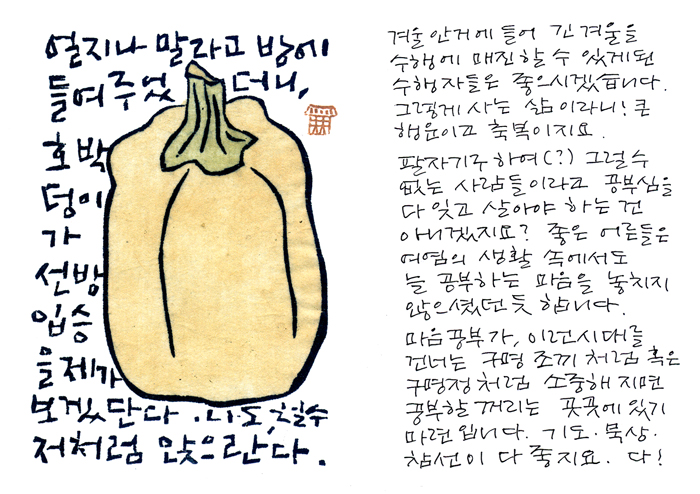 얼지나 말라고 방에
들여주었더니,
호박
덩이
가
선방
입승
을제가
보겠단다. 나도,
저처럼 앉으란다.
겨울 안거에 들어 긴 겨울을
수행에 매진할 수 있게된
수행자들은 좋으시겠습니다.
그렇게 사는 삶이라니! 큰
행운이고 축복이지요.
팔자기구하여(?) 그럴 수
없는 사람들이라고 공부심을
다 잊고 살아야 하는 건
아니겠지요? 좋은 어른들은
여염의 생활 속에서도
늘 공부하는 마음을 놓치지
않으셨던 듯 합니다.
마음공부가, 이런시대를
건너는 구명 조끼처럼 혹은
구명정처럼 소중해지면
공부할 꺼리는 곳곳에 있기
마련입니다. 기도·묵상·
참선이 다 좋지요. 다!